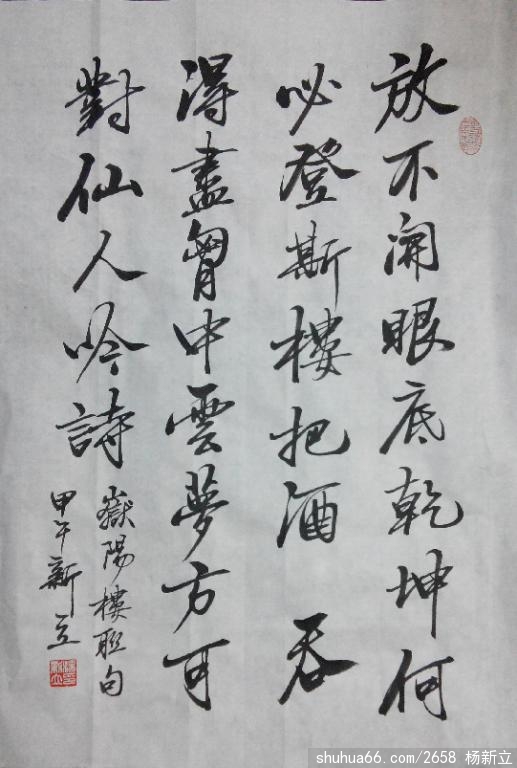 放不開眼底乾坤何
必登斯樓把酒 吞
得盡胷中雲夢方可
對仙人吟詩
嶽陽樓联句
甲午新立
shuhua66.com/2658 杨新立